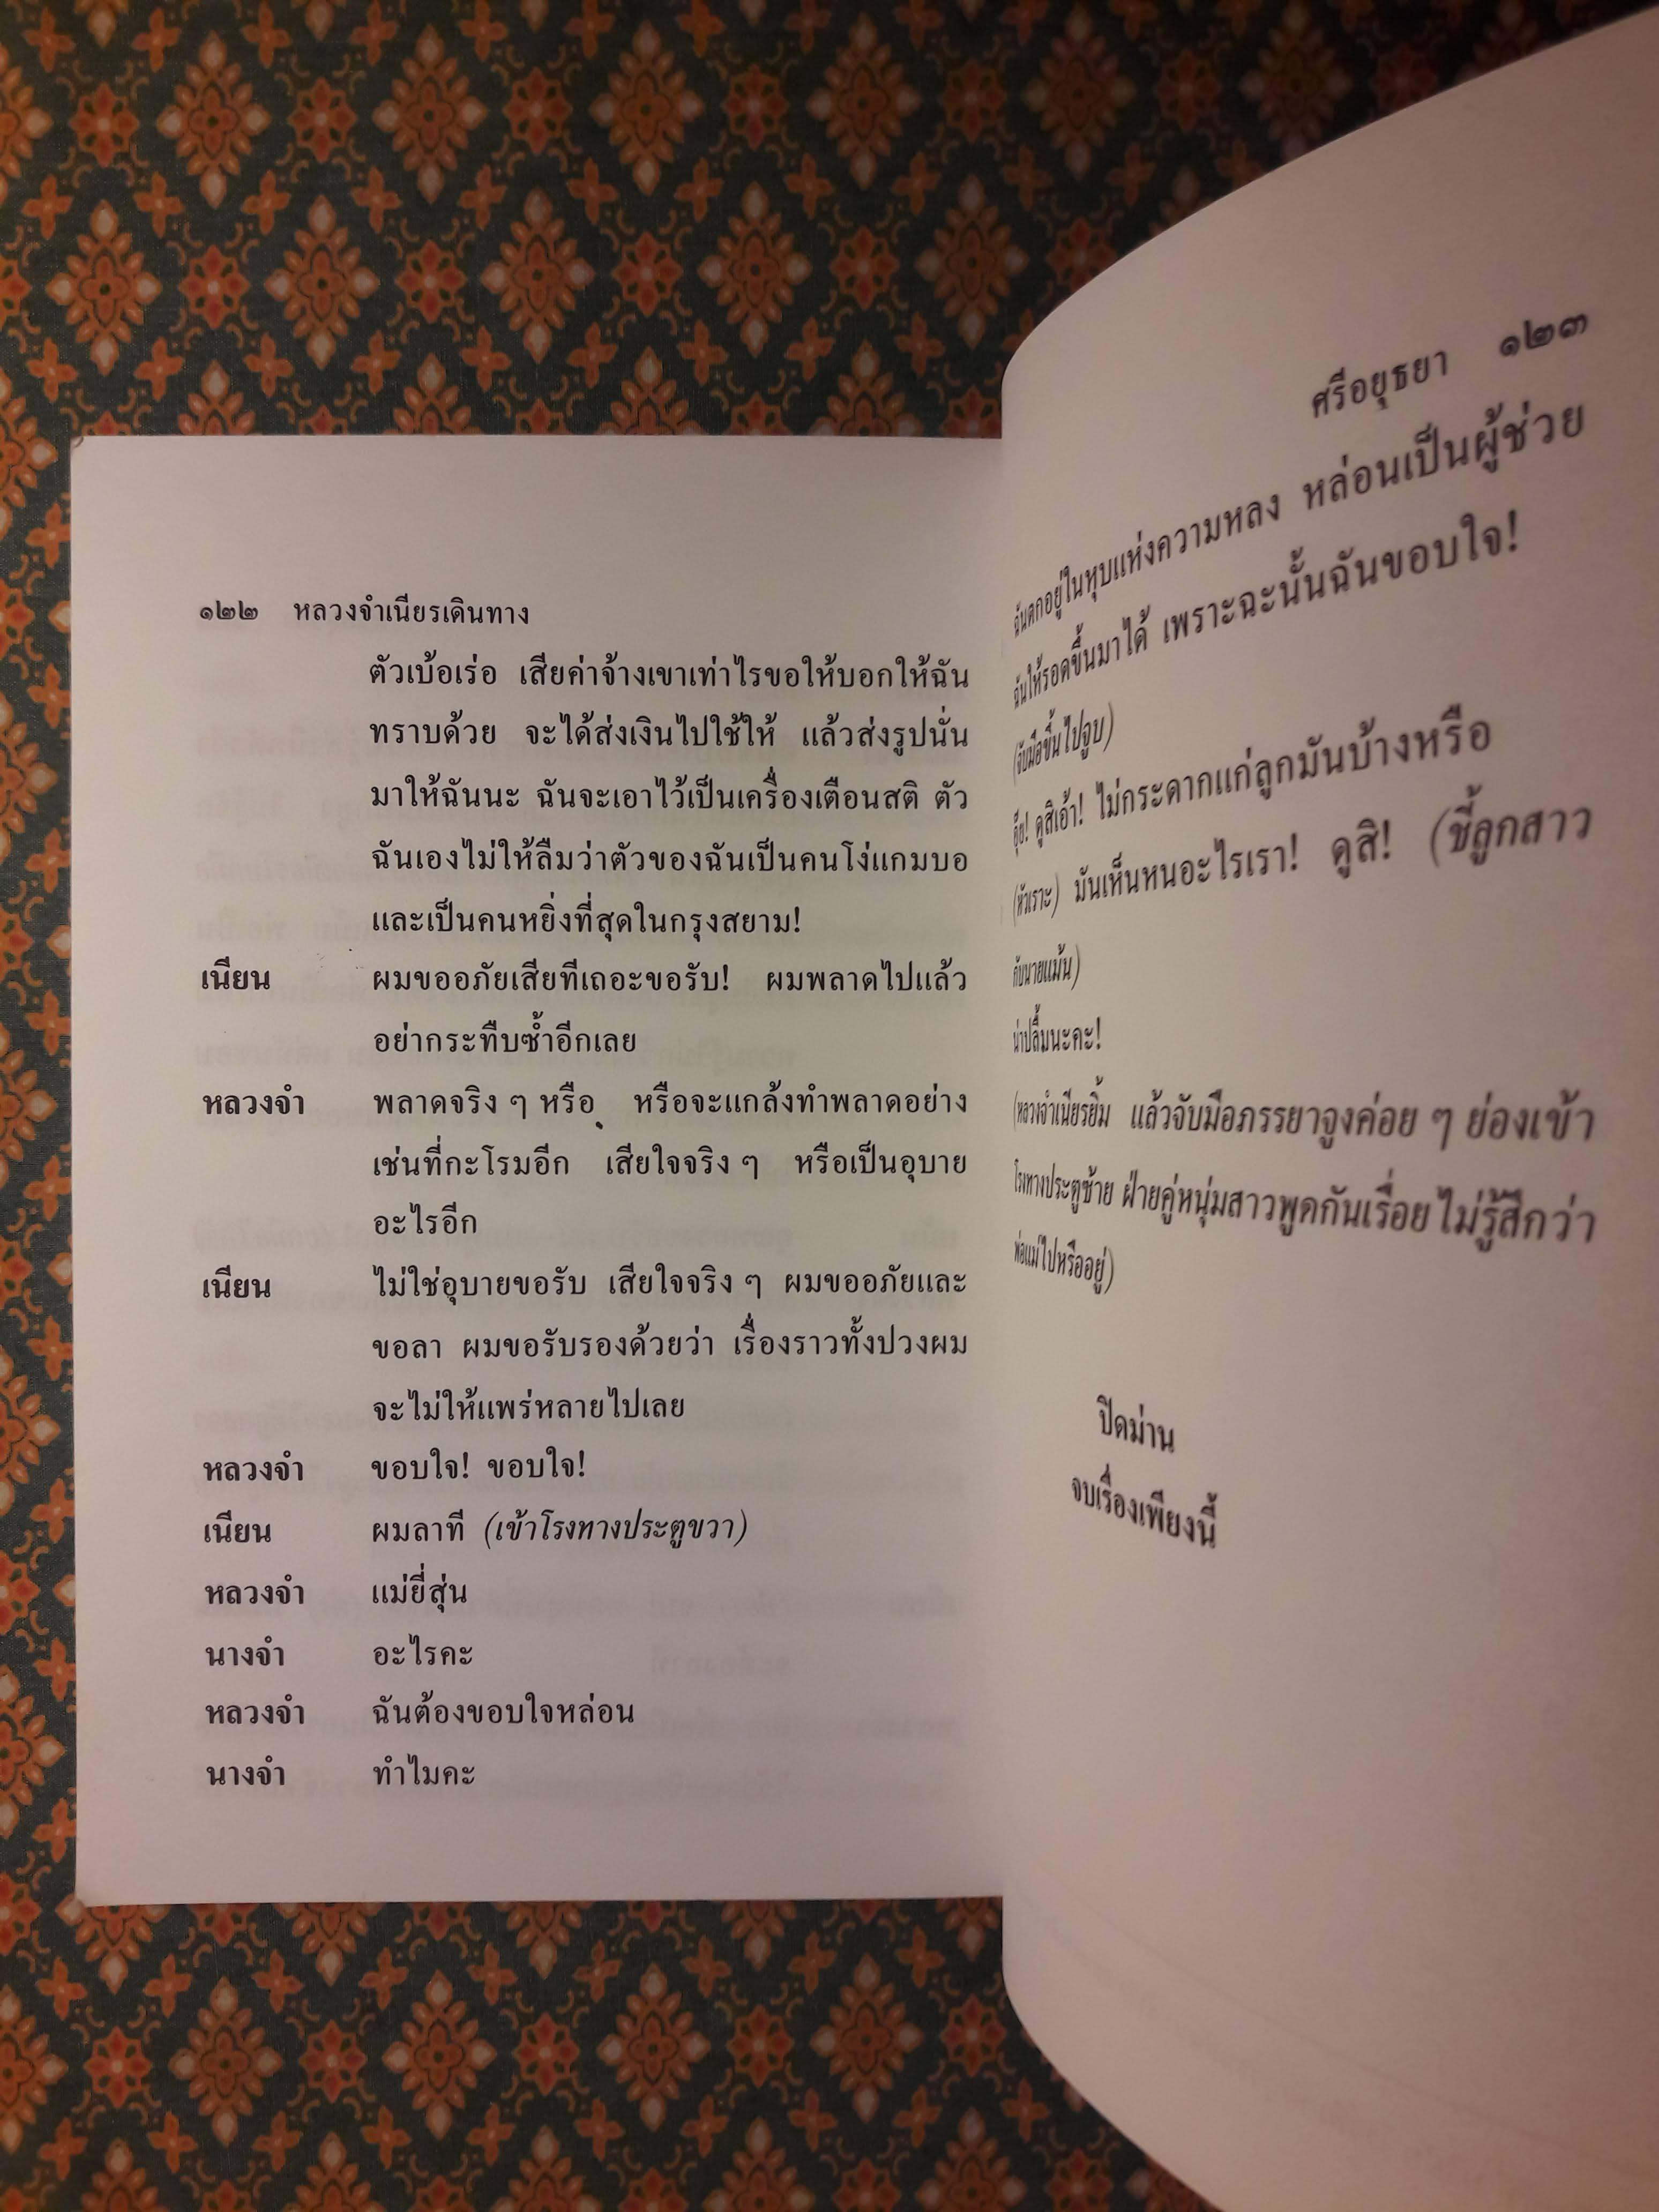 ๑๒๒ หลวงจำเนียรเดินทาง
ตัวเบ้อเร่อ เสียค่าจ้างเขาเท่าไรขอให้บอกให้ฉัน
ทราบด้วย จะได้ส่งเงินไปใช้ให้ แล้วส่งรูปนั่น
มาให้ฉันนะ ฉันจะเอาไว้เป็นเครื่องเตือนสติ ตัว
ฉันเองไม่ให้ลืมว่าตัวของฉันเป็นคนโง่แกมบอ
และเป็นคนหยิ่งที่สุดในกรุงสยาม!
เนียน ผมขออภัยเสียทีเถอะขอรับ! ผมพลาดไปแล้ว
อย่ากระทืบซ้ำอีกเลย
หลวงจำ พลาดจริง ๆ หรือ หรือจะแกล้งทำพลาดอย่าง
เช่นที่กะโรมอีก เสียใจจริง ๆ หรือเป็นอุบาย
อะไรอีก
เนียน ไม่ใช่อุบายขอรับ เสียใจจริง ๆ ผมขออภัยและ
ขอลา ผมขอรับรองด้วยว่า เรื่องราวทั้งปวงผม
จะไม่ให้แพร่หลายไปเลย
หลวงจำ ขอบใจ! ขอบใจ!
เนียน ผมลาที (เข้าโรงทางประตูขวา)
หลวงจำ แม่ยี่สุ่น
นางจำ อะไรคะ
หลวงจำ ฉันต้องขอบใจหล่อน
นางจำ ทำไมคะ
ศรีอยุธยา ๑๒๓
ฉันตกอยู่ในหุบแห่งความหลง หล่อนเป็นผู้ช่วย
ฉันให้รอดขึ้นมาได้ เพราะฉะนั้นฉันขอบใจ!
(จับมือขึ้นไปจูบ)
อุ๊ย! ดูสิเอ้า! ไม่กระดากแก่ลูกมันบ้างหรือ
(หัวเราะ) มันเห็นหนอะไรเรา! ดูสิ! (ชี้ลูกสาว
กับนายแม้น)
น่าปลื้มนะคะ!
(หลวงจำเนียรยิ้ม แล้วจับมือภรรยาจูงค่อย ๆ ย่องเข้า
โรงทางประตูซ้าย ฝ่ายคู่หนุ่มสาวพูดกันเรื่อยไม่รู้สึกว่า
พ่อแม่ไปหรืออยู่)
ปิดม่าน
จบเรื่องเพียงนี้